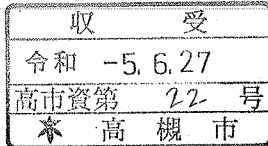 収受
令和 -5.6.27
高市資第 22 号
高槻市